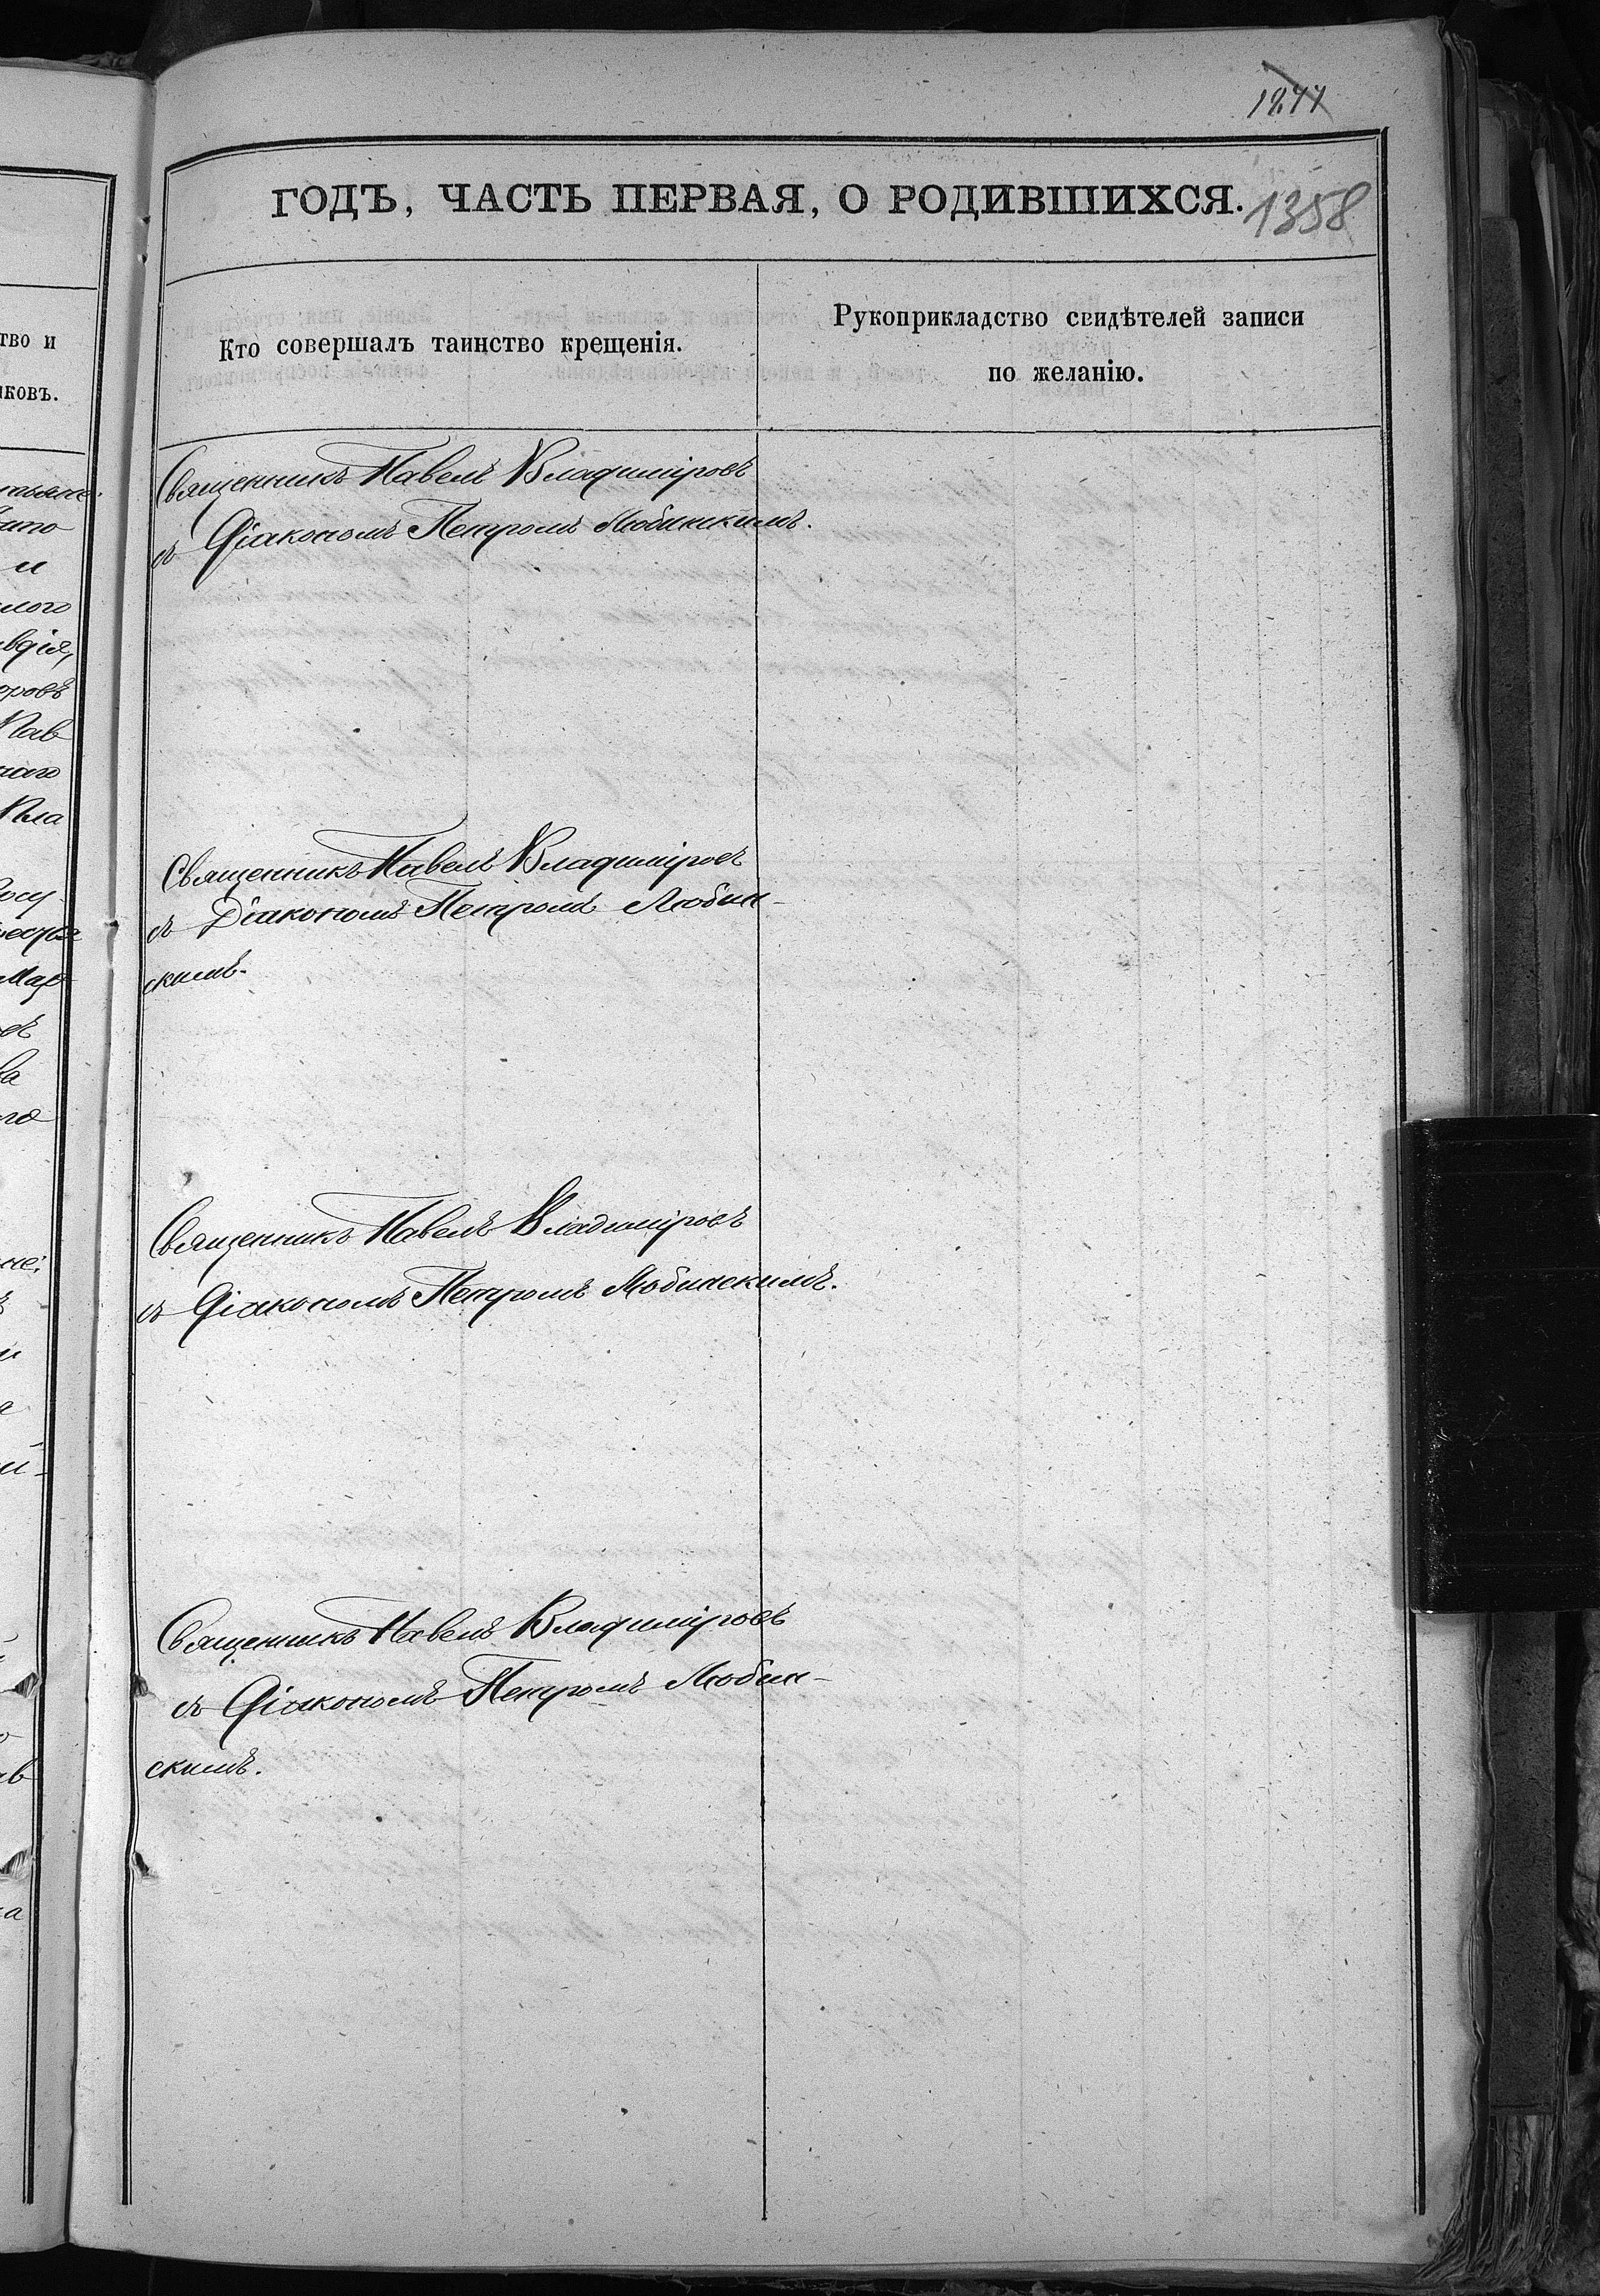 1277
ГОДЪ, ЧАСТЬ ПЕРВАЯ, О РОДИВШИХСЯ.
1358
Кто совершалъ таинство крещенія.
Рукоприкладство свидѣтелей записи
по желанію.
Священникъ Павелъ Владиміровъ
съ Діакономъ Петромъ Любинскимъ.
Священникъ Павелъ Владиміровъ
съ Діакономъ Петромъ Любин-
скимъ.
Священникъ Павелъ Владиміровъ
съ Діакономъ Петромъ Любинскимъ.
Священникъ Павелъ Владиміровъ
съ Діакономъ Петромъ Любин-
скимъ.